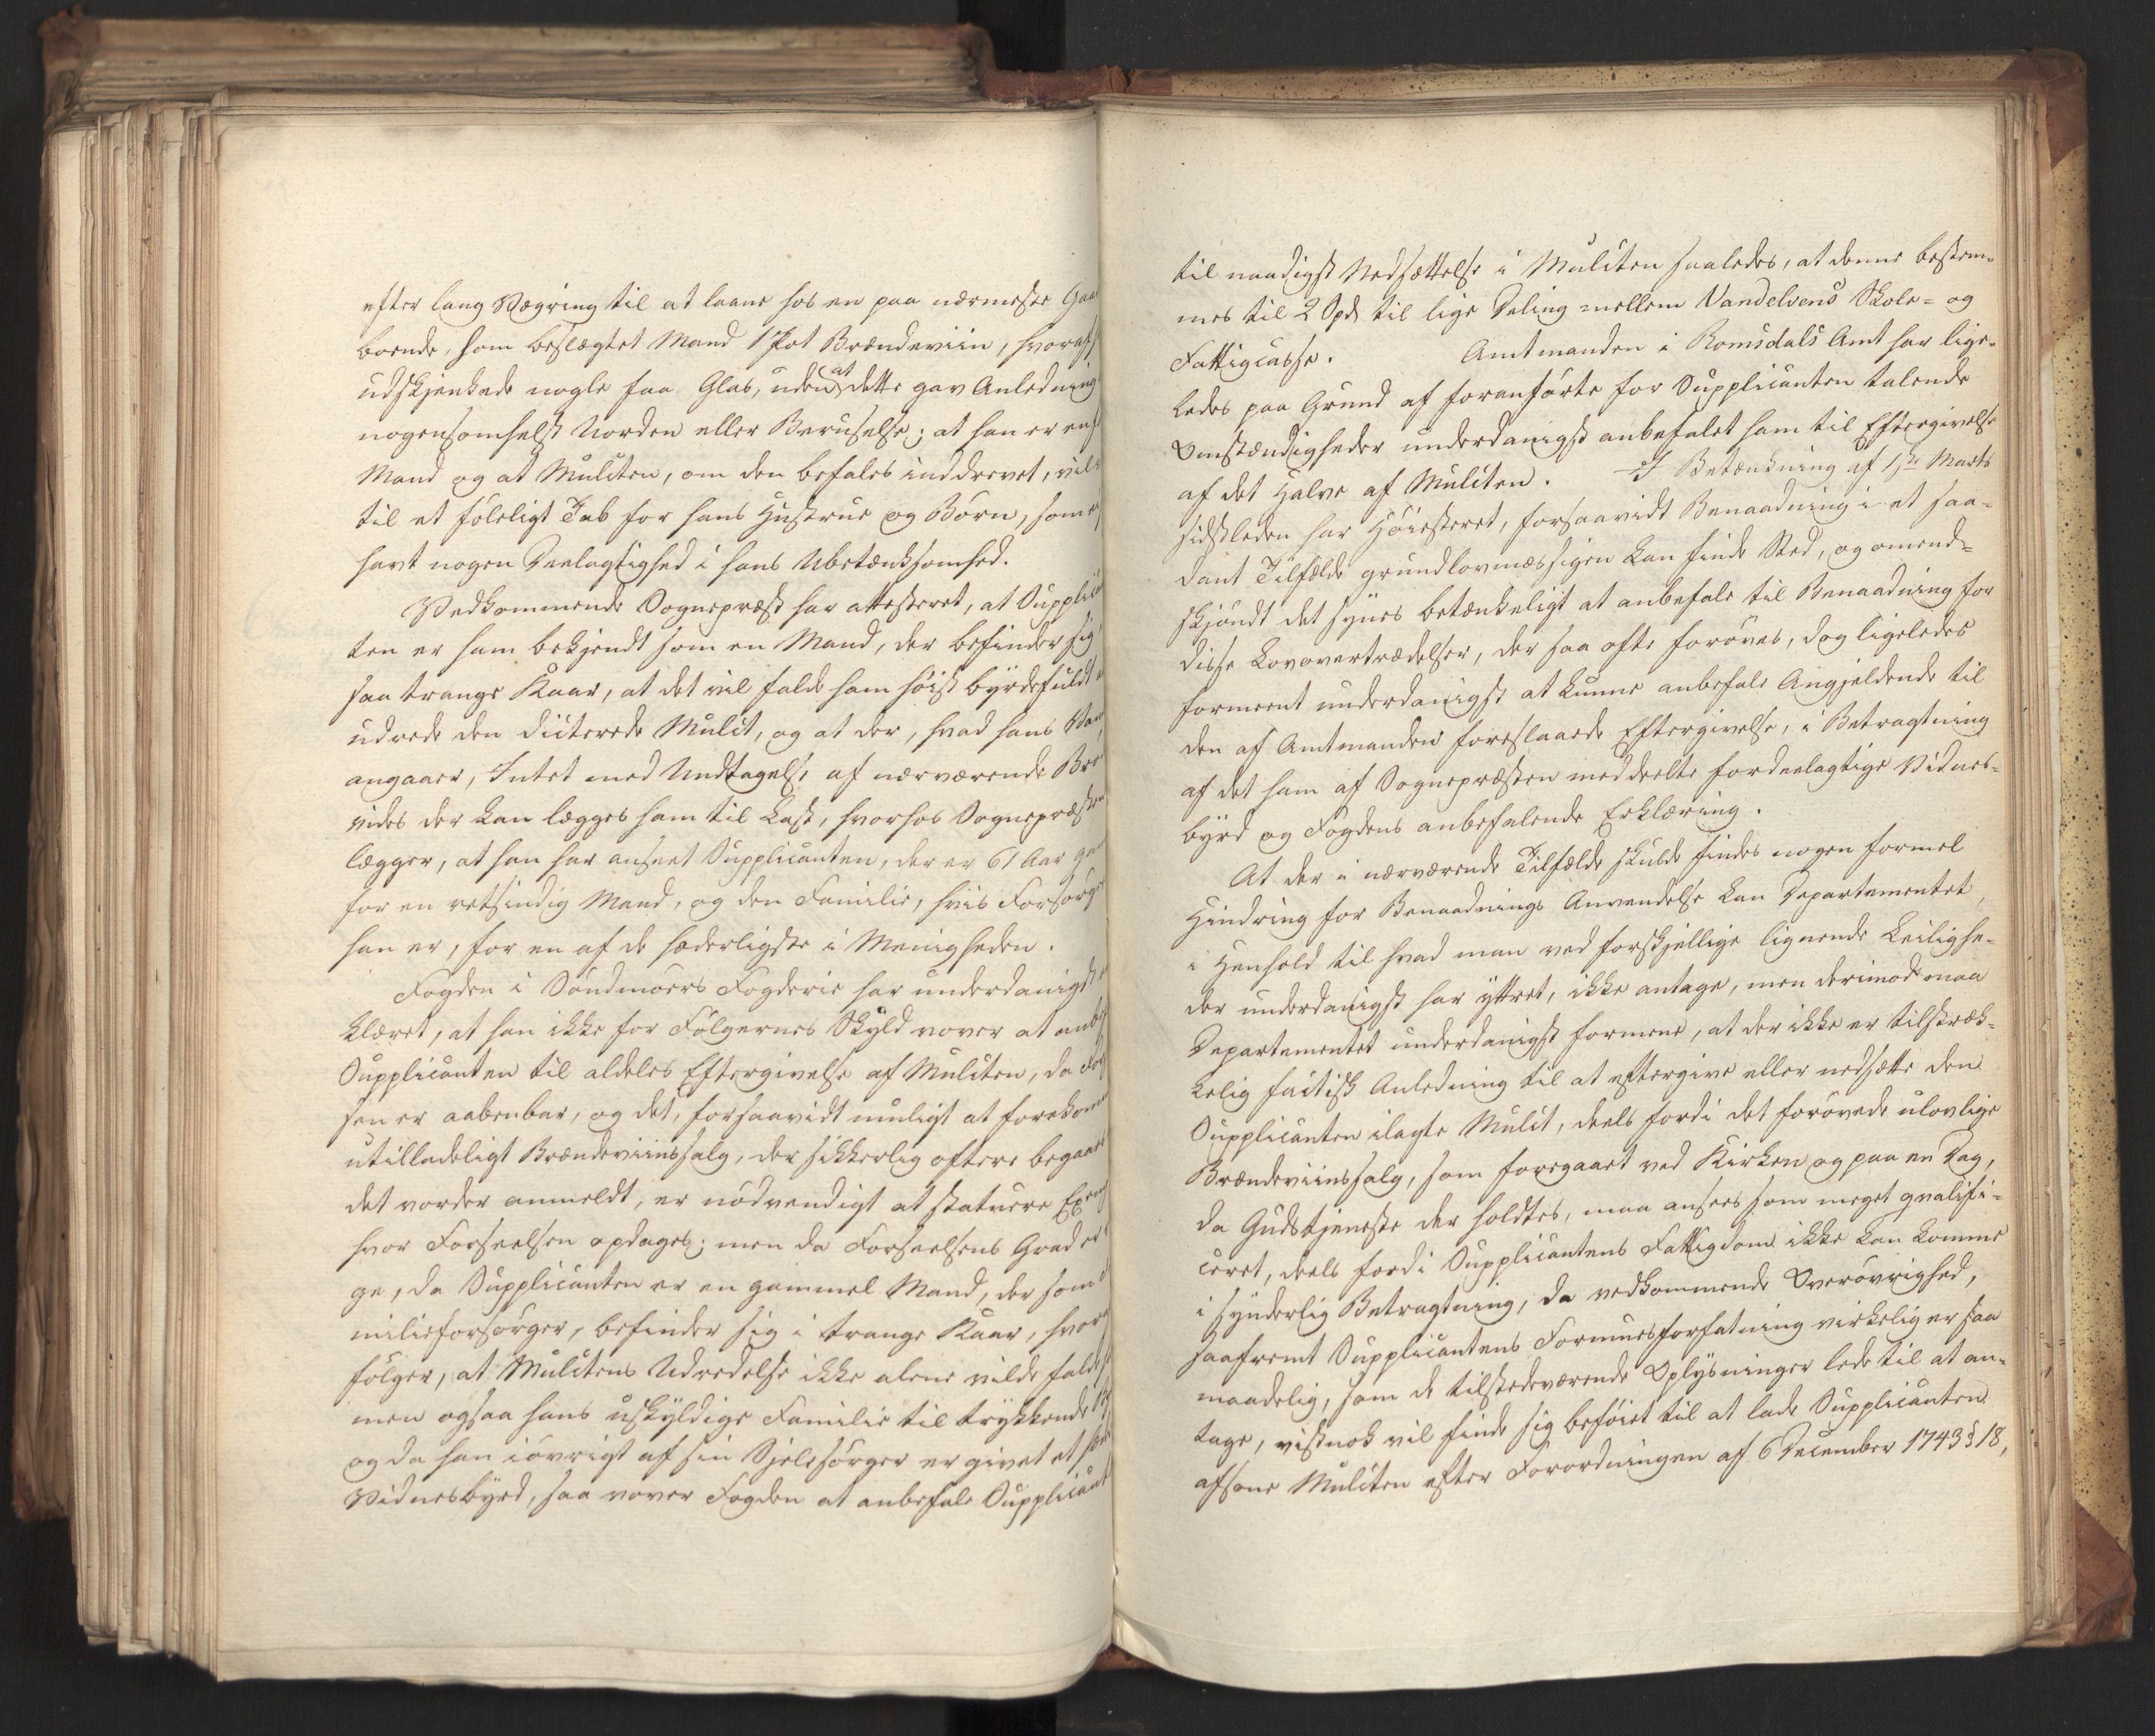 efter lang Vægring til at laane hos en paa nærmeste Gaa
boende, ham beslægtet Mand 1 Pot Brændeviin, hvoraf
udskjenkede nogle faa Glas, uden at dette gav Anledning
nogensomhelst Uorden eller Beruselse; at han er en
Mand og at Mulcten, om den befales inddrevet, vil
til et föleligt Tab for hans Hustrue og Börn, som
havt nogen Deelagtighed i hans Ubetænksomhed.
Vedkommende Sognepræst har attesteret, at Supplic
ten er ham bekjendt som en Mand, der befinder sig
saa trange Kaar, at det vil falde ham höist byrdefuldt
udrede den dicterede Mulct, og at der, hvad hans Van
angaaer, Intet med Undtagelse af nærværende Brö
vides der kan lægges ham til Last, hvorhos Sognepræsten
lægger, at han har anseet Supplicanten, der er 61 Aar ga
for en retsindig Mand, og den Familie, hvis Forsörger
han er, for en af de hæderligste i Menigheden.
Fogden i Söndmöers Fogderie har underdanigst
klæret, at han ikke for Fölgernes Skyld vover at anbe
Supplicanten til aldeles Eftergivelse af Mulcten, da For
sen er aabenbar, og det, forsaavidt muligt at forekomme
utilladeligt Brændeviinssalg, der sikkerlig oftere begaaes
det vorder anmeldt, er nödvendigt at statuere Exem
hvor Forseelsen opdages; men da Forseelsens Grad er
ge, da Supplicanten er en gammel Mand, der som
milieforsörger, befinder sig i trange Kaar, hvor
fölger, at Mulctens Udredelse ikke alene vilde falde
men ogsaa hans uskyldige Familie til trykkende
og da han iövrigt af sin Sjelesörger er givet et
Vidnesbyrd, saa vover Fogden at anbefale Supplicant
til naadigst Nedsættelse i Mulcten saaledes, at denne bestem-
mes til 2 Spd til lige Deling mellem Vandelvens Skole- og
Fattigcasse. Amtmanden i Romsdals Amt har lige-
ledes paa Grund af foranförte for Supplicanten talende
Omstændigheder underdanigst anbefalet ham til Eftergivelse
af det Halve af Mulcten. I Betænkning af Marts
sidstleden har Höiesteret, forsaavidt Benaadning i et saa-
dant Tilfælde grundlovmæssigen kan finde Sted, og omend-
skjöndt det synes betænkeligt at anbefale til Benaadning for
disse Lovovertrædelser, der saa ofte foröves, dog ligeledes
formeent underdanigst at kunne anbefale Angjeldende til
den af Amtmanden foreslaaede Eftergivelse, i Betragtning
af det ham af Sognepræsten meddeelte fordeelagtige Vidnes-
byrd og Fogdens anbefalende Erklæring.
At der i nærværende Tilfælde skulde findes nogen formel
Hindring for Benaadnings Anvendelse kan Departementet,
i Henhold til hvad man ved forskjellige lignende Leilighe-
der underdanigst har yttret, ikke antage, men derimod maa
Departementet underdanigst formene, at der ikke er tilstræk-
kelig factisk Anledning til at eftergive eller nedsætte den
Supplicanten ilagte Mulct, deels fordi det forövede ulovlige
Brændeviinssalg, som foregaaet ved Kirken og paa en Dag,
da Gudstjeneste der holdtes, maa ansees som meget qvalifi-
ceret, deels fordi Supplicantens Fattigdom ikke kan komme
i synderlig Betragtning, da vedkommende Överövrighed,
saafremt Supplicantens Formuesforfatning virkelig er saa
maadelig, som de tilstedeværende Oplysninger lede til at an-
tage, vistnok vil finde sig beföiet til at lade Supplicanten
afsone Mulcten efter Forordningen af 6 December 1743 § 18,